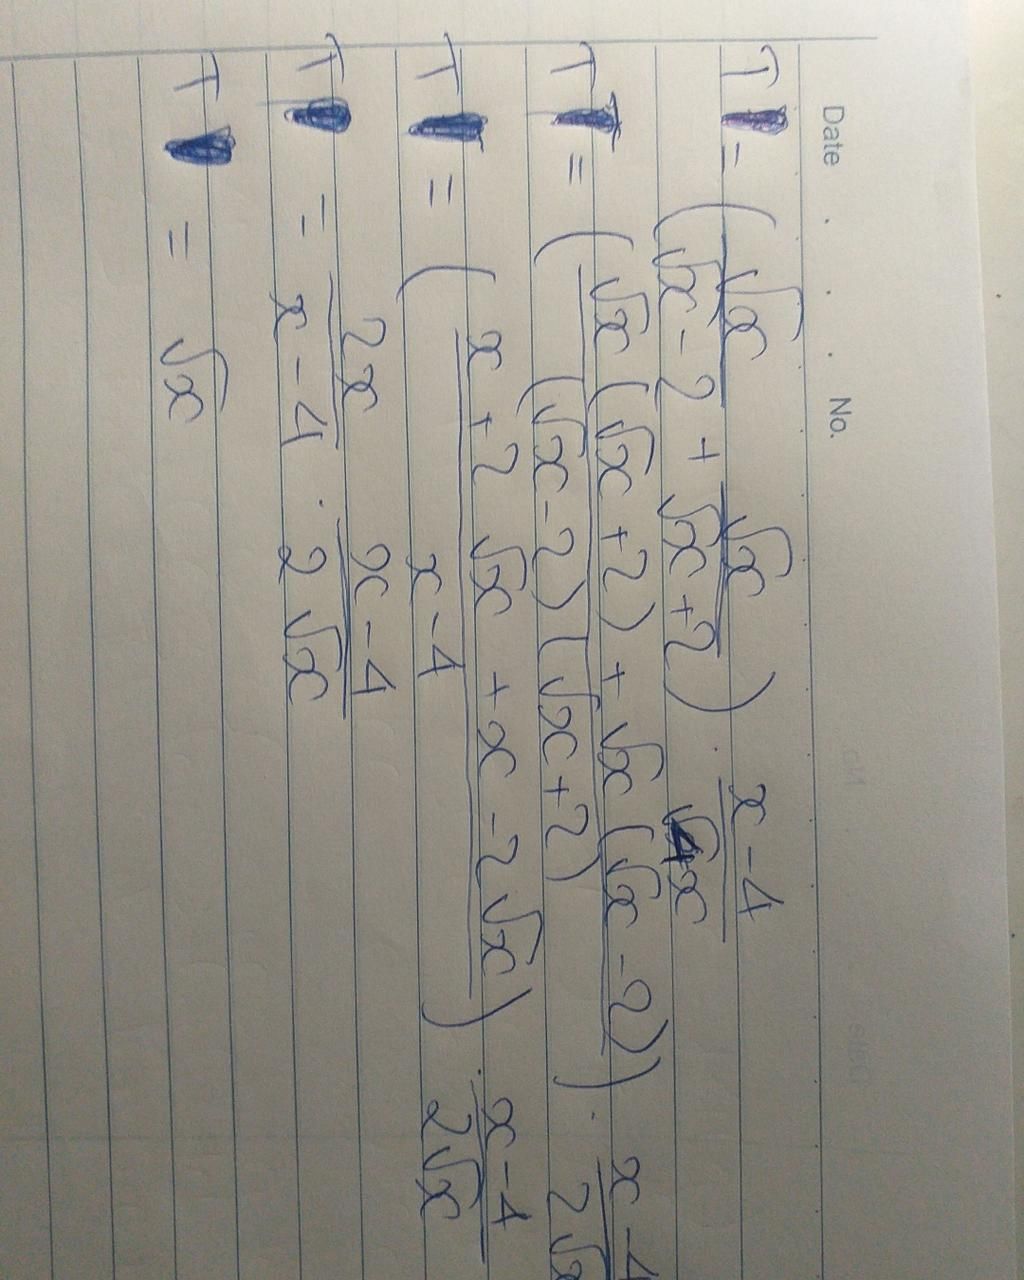 Date . . . No.
T = (√x / (√x - 2) + √x / (√x + 2)) · (x - 4) / √4x
T = ((√x (√x + 2) + √x (√x - 2)) / ((√x - 2) (√x + 2))) · (x - 4) / 2√x
T = ((x + 2√x + x - 2√x) / (x - 4)) · (x - 4) / 2√x
T = 2x / (x - 4) · (x - 4) / 2√x
T = √x